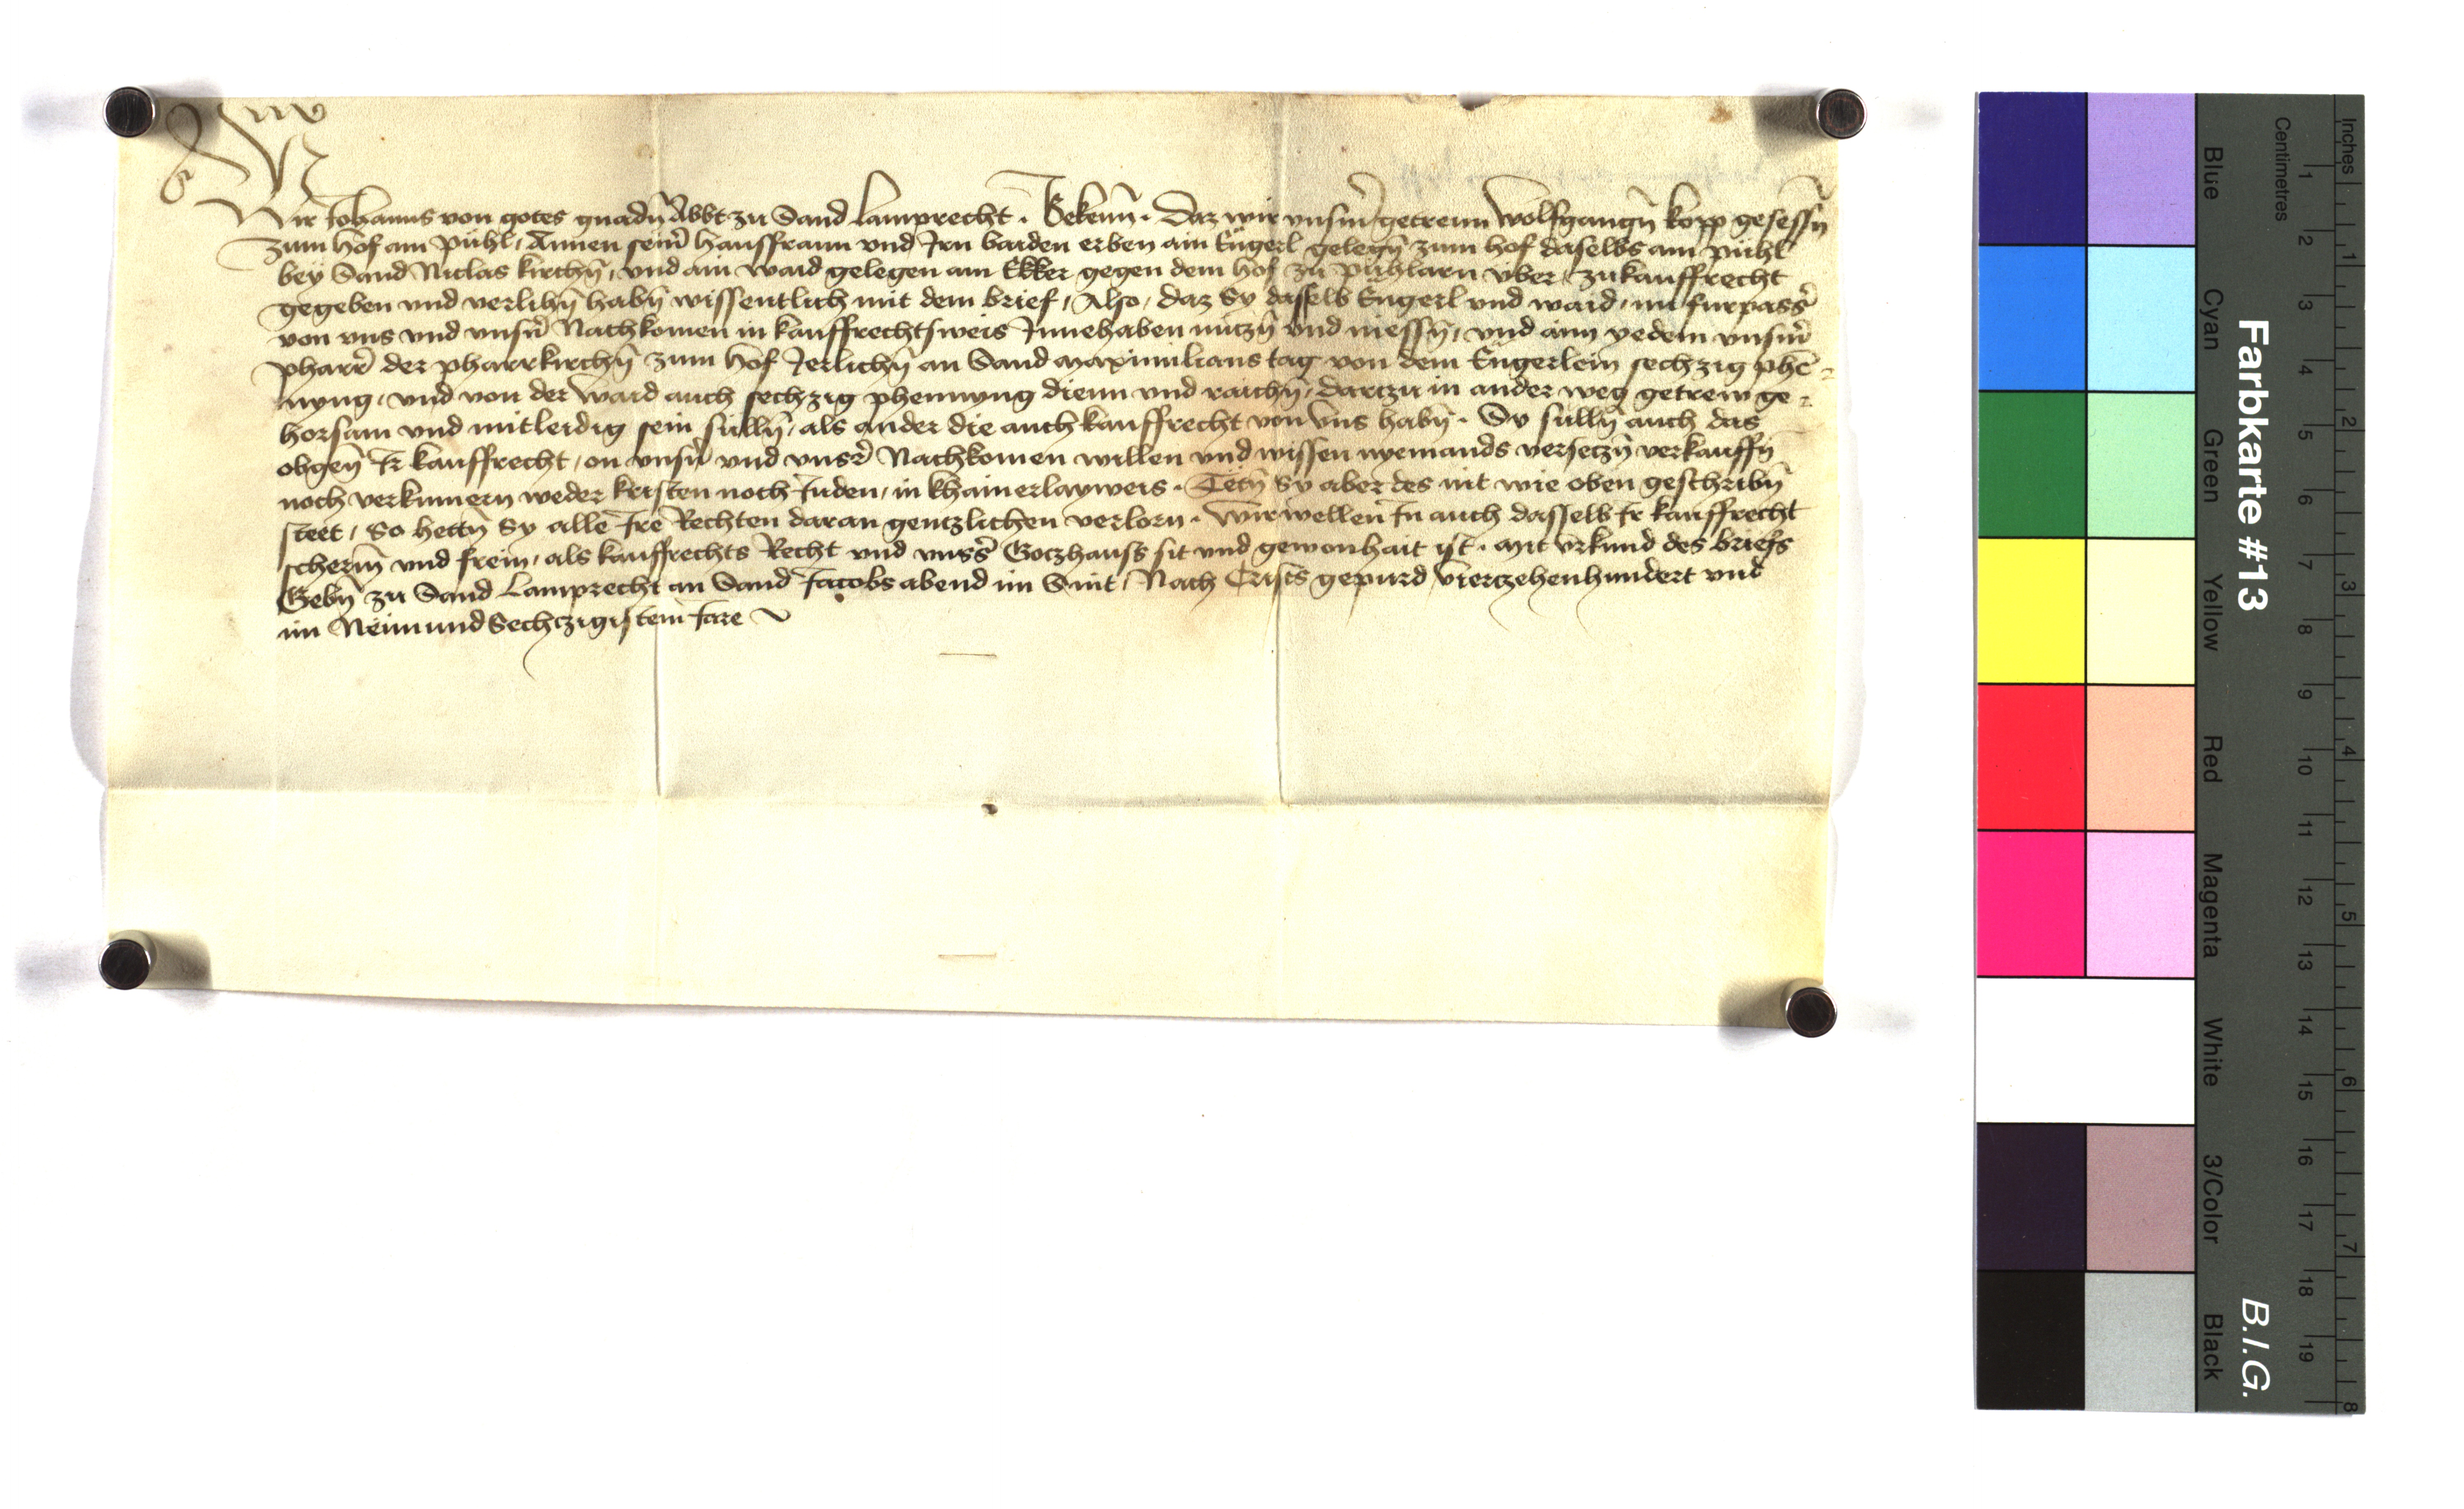 Wir Johanns von gotes gnadn̄ Abbt zu Sand Lamprecht . Bekenn̄ . Daz wir vnsm̄ getreun Wolfgangn̄ kopp gesessn̄
zum hof am pühl, Annen sein̄ hausfraun vnd Irn baiden erben ain Eŭgerl gelegn̄ zum hof daselbs am pühl
bey Sand Niclas kirchn̄, vnd ain waid gelegen am Ekker gegen dem hof zu pühlarn über, zu kauffrecht
gegeben vnd verlihn̄ habn̄ wissentlich mit dem brief, Also, daz Sy dasselb Eugerl vnd waid, nu furpass̄
von vns vnd vnsn̄ Nachkomen in kauffrechtsweis Innehaben nutzn̄ vnd niessn̄, vnd ainn yedem vnsm̄
pharr̄ der pharrkirchn̄ zum hof Jerlichn̄ an Sand Maximilians tag von dem Eŭgerlein sechzig phē-
nyng, vnd von der Waid auch sechzig phennyng dienn vnd raichn̄, darczu in ander weg getrew ge-
horsam vnd mitleidig sein sülln̄, als ander die auch kauffrecht von vns habn̄ . Sy sülln̄ auch das
obgen̄ Ir kauffrecht, on vnsn̄ vnd vnsr̄ Nachkomen willen vnd wissen nyemands verseczn̄ verkauffn̄
noch verkumern weder kristen noch Juden, in khainerlayweis . Tetn̄ Sy aber des nit wie oben geschribn̄
steet, So hettn̄ Sy alle Ire Rechten daran gentzlichen verlorn . Wir wellen In auch dasselb Ir kauffrecht
scherm̄ vnd frein, als kauffrechts Recht vnd vnss̄ Goczhauss sit vnd gewonhait ist . Mit vrkund des briefs
Gebn̄ zu Sand Lamprecht an Sand Jacobs abend im Snit, Nach Crists gepurd Vierczehenhundert vnd
im NeunundSechczigistem Jare
Farbkarte #13
B.I.G.
Inches
Centimetres
1 2 3 4 5 6 7 8 9 10 11 12 13 14 15 16 17 18 19
1 2 3 4 5 6 7 8
Blue
Cyan
Green
Yellow
Red
Magenta
White
3/Color
Black